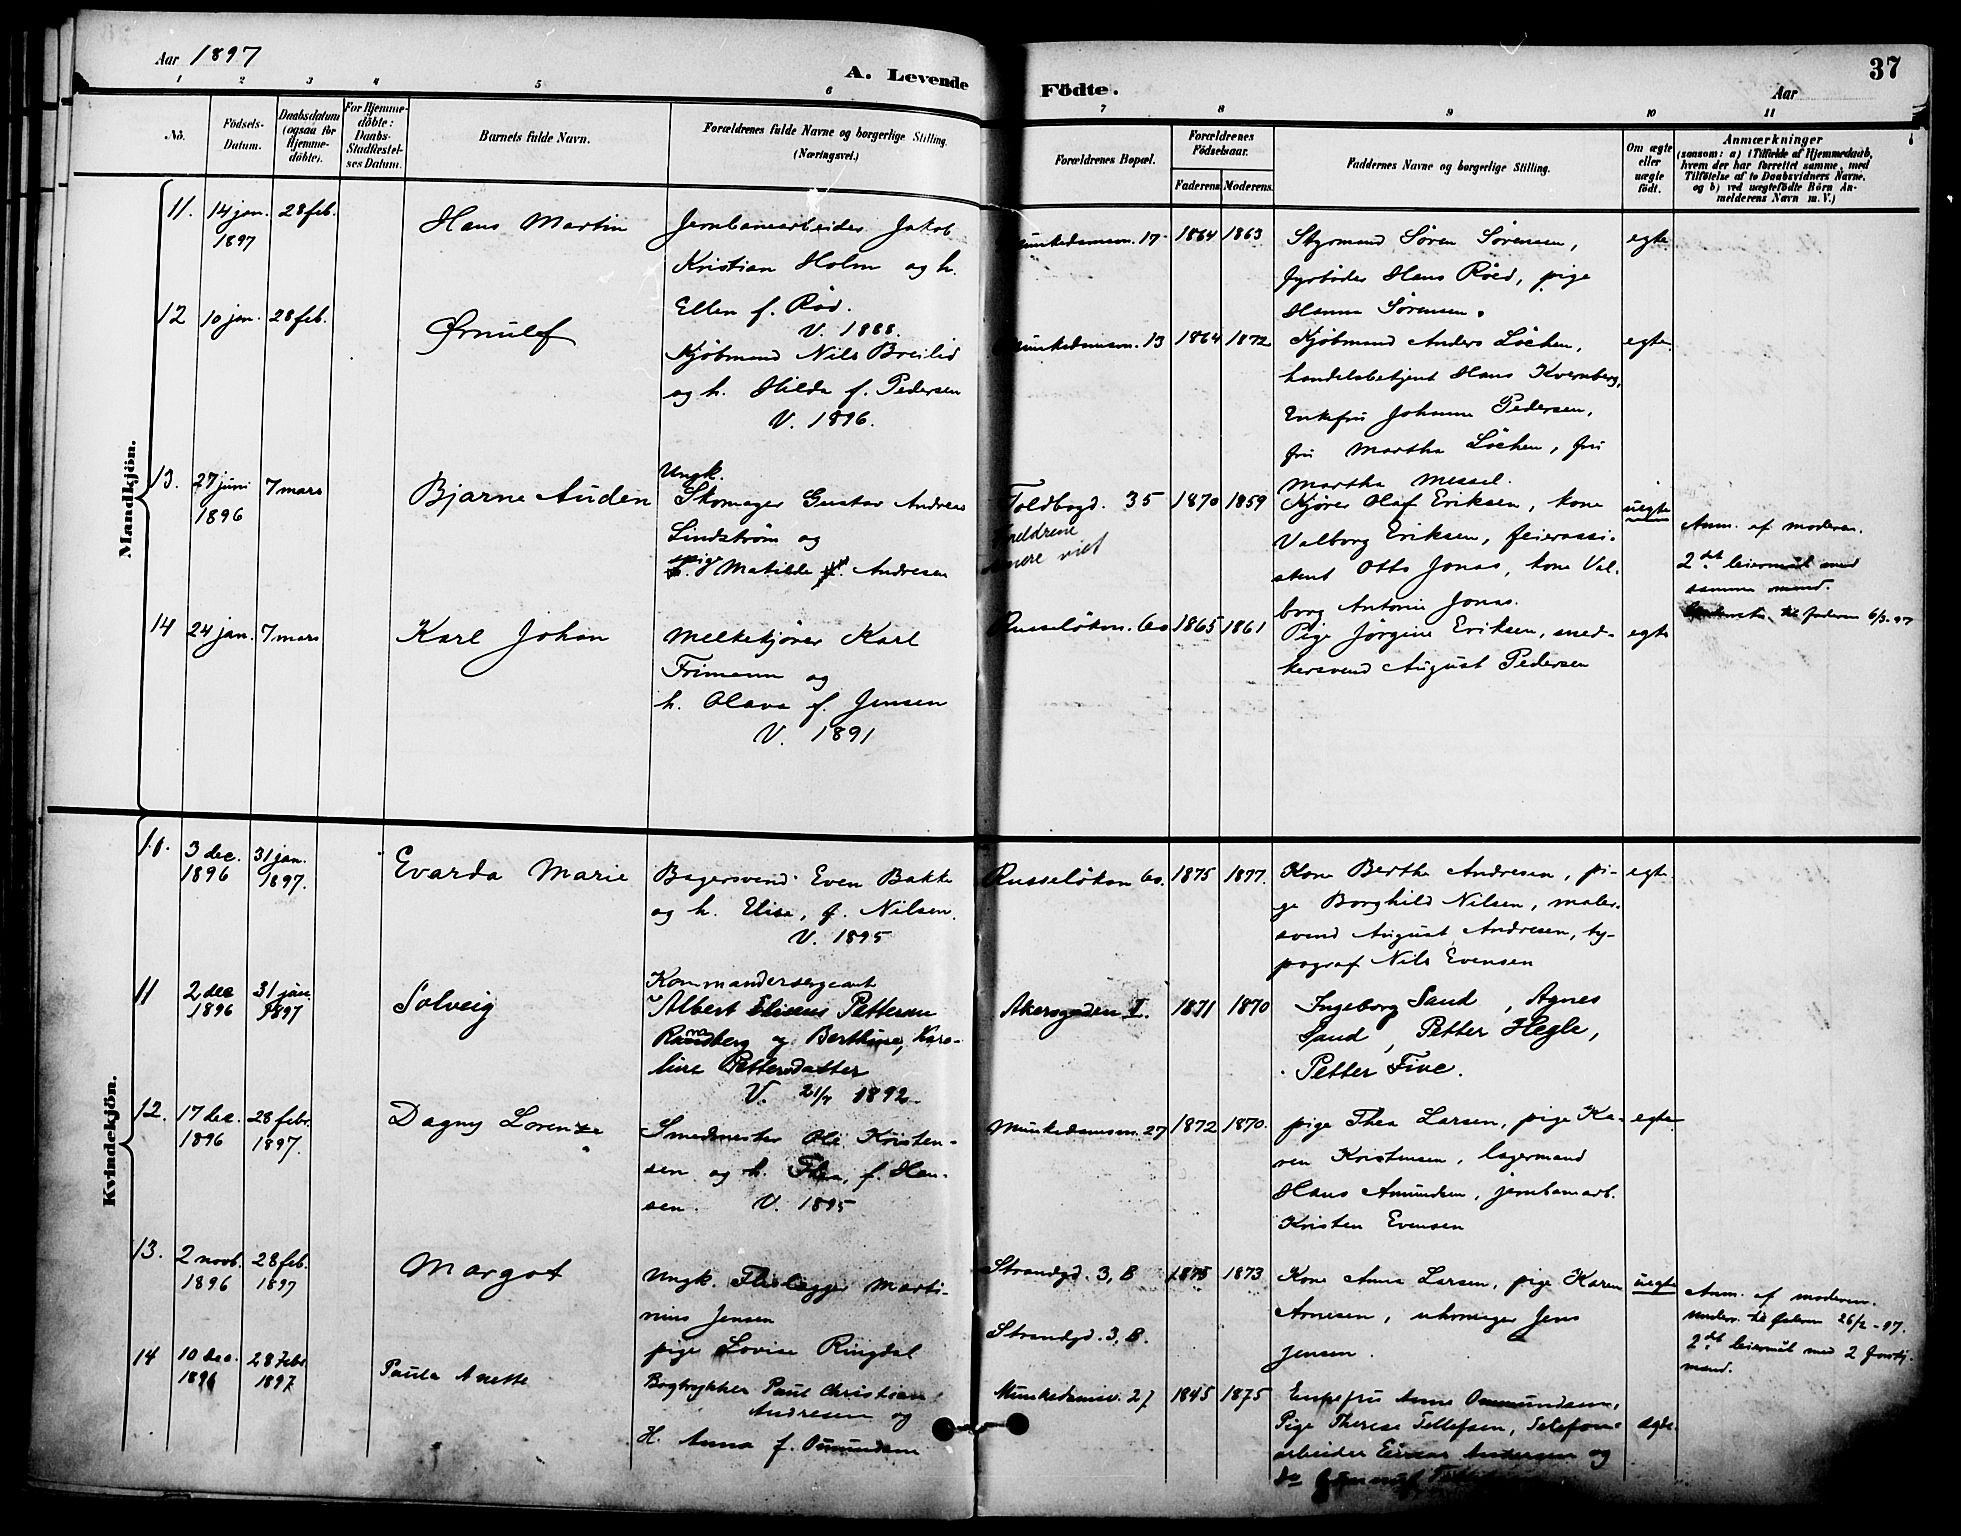 Aar 1897
A. Levende Födte.
37
Aar
1 2 3 4 5 6 7 8 9 10 11
Nô.
Födsels-Datum.
Daabsdatum (ogsaa for Hjemmedöbte).
For Hjemmedöbte: Daabs-Stadfæstelses Datum.
Barnets fulde Navn.
Forældrenes fulde Navne og borgerlige Stilling. (Næringsvei.)
Forældrenes Bopæl.
Forældrenes Födselsaar.
Faderens. Moderens.
Faddernes Navne og borgerlige Stilling.
Om ægte eller uægte födt.
Anmærkninger
(saasom: a) i Tilfælde af Hjemmedaab, hvem der har forrettet samme, med Tilföielse af to Daabsvidners Navne, og b) ved uægtefödte Börn Anmelderens Navn m. V.)
Mandkjön.
11. 14 jan. 1897 28 feb.
Hans Martin
Jernbanearbeider Jakob
Kristian Holm og h.
Ellen f. Rød.
V. 1888.
Munkedamsv. 17 1864 1863
Styrmand Søren Sørensen,
fyrbøder Hans Röed, pige
Hanna Sørensen.
egte
12 10 jan. 28 feb.
Ørnulf
Kjøbmand Nils Breilid
og h. Hilda f. Pedersen
V. 1896.
Munkedamsv. 13 1864 1872
Kjøbmand Anders Löchen,
handelsbetjent Hans Kvernberg,
Enkefru Johanne Pedersen,
fru Martha Löchen, fru
Martha Messel.
egte
13. 27 juni 1896 7 mars
Bjarne Auden
Ungk.
Skomager Gustav Andreas
Lindstrøm og
pige Matilde Andresen
Toldbogd. 35 1870 1859
Foreldrene
senere viet
Kjører Olaf Eriksen, kone
Valborg Eriksen, feierassi-
stent Otto Jonas, kone Val-
borg Antonie Jonas.
uegte
Anm. af moderen.
2det leiermål med
samme mand.
til faderen 6/3-97
14 24 jan. 7 mars
Karl Johan
Melkekjører Karl
Frimann og
h. Olava f. Jensen
V. 1891
Russeløkvn. 60 1865 1861
Pige Jørgine Eriksen, sned-
kersvend August Pedersen
egte
Kvindekjön.
10. 3 dec. 1896 31 jan. 1897.
Evarda Marie
Bagersvend Even Bakke
og h. Elise, f. Nilsen.
V. 1895
Russeløkvn 60. 1875 1877.
Kone Berthe Andresen, pi-
ge Borghild Nilsen, maler-
svend August Andresen, ty-
pograf Nils Evensen
egte
11 2 dec 1896 31 jan. 1897
Solveig
Kommandersergeant
Albert Eliseus Pettersen
Randberg og Berthine, Karo-
line Pettersdatter
V. 21/7 1892
Akersgaden I. 1871 1870
Ingeborg Sand, Agnes
Sand, Petter Hegle,
Petter Five.
12. 17 dec. 1896 28 febr. 1897.
Dagny Lorenze
Smedmester Ole Kristen-
sen og h. Thea, f. Han-
sen. V. 1895
Munkedamsvn. 27 1872 1870.
pige Thea Larsen, pige Ka-
ren Kristensen, lagermand
Hans Amundsen, jernbanearb.
Kristen Evensen
egte
13. 2 novb. 1896 28 feb. 1897
Margot
Ungk. Flislegger Marti-
nius Jensen
pige Lovise Ringdal
Strandgd. 3, B 1875 1873
Strandgd. 3, B.
Kone Anna Larsen, pige Karen
Arnesen, uhrmager Jens
Jensen.
uegte
Anm. af moderen.
underr. til faderen 26/2-97.
2det leiermål med 2 forskj.
mand.
14 10 dec. 1896 28 febr 1897
Paula Anette
Bogtrykker Paul Christian
Andresen og
H. Anna f. Omundsen
Munkedamsv. 27 1845 1875
Enkefru Anne Ommundsen,
Pige Therese Tellefsen, Telefon-
arbeider Einar Andersen og
do
egte